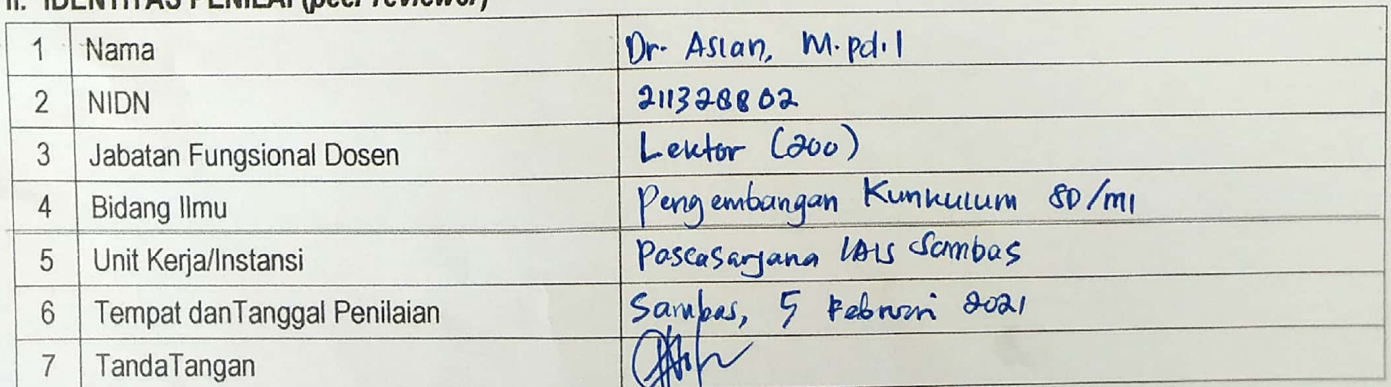 II. IDENTITAS PENILAI (peer reviewer)
1 Nama Dr. Aslan, M.pd.I
2 NIDN 211328802
3 Jabatan Fungsional Dosen Lektor (200)
4 Bidang Ilmu Pengembangan Kurikulum SD/MI
5 Unit Kerja/Instansi Pascasarjana IAIS Sambas
6 Tempat danTanggal Penilaian Sambas, 5 Februari 2021
7 TandaTangan